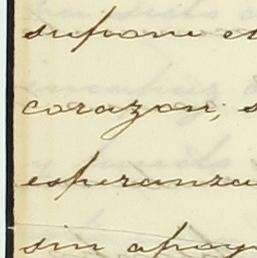 supone
corazon;
esperanza
sin